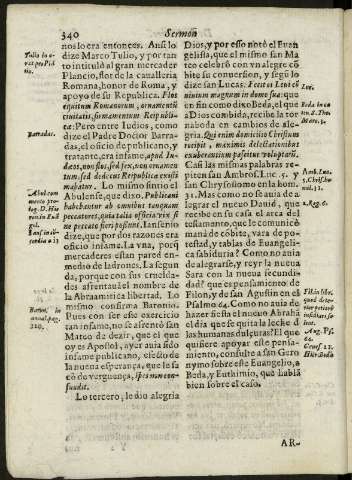 340
Sermon
nos lo era entonces. Ansi lo
dize Marco Tulio, y por tan
to intituló al gran mercader
Plancio, flor de la cavalleria
Romana, honor de Roma, y
apoyo de su Republica. Flos
equitum Romanorum, ornamentũ
civitatis, firmamentum Reipubli-
ca: Pero entre Iudios, como
dize el Padre Doctor Barra-
das, el oficio de publicano, y
tratante, era infame, apud Iu-
dæos, non flos, sed fex, non ornamen
tum, sed dedecus Reipublica existi
mabatur. Lo mismo sintio el
Abulense, que dixo, Publicani
habebantur ab omnibus tanquam
peccatores, quia talia officia vix si
ne peccato fieri possunt. Iansenio
dize, que por dos razones era
oficio infame. La vna, porq̃
mercaderes estan pared en-
medio de ladrones. La segun
da, porque con sus crueldades
afrentauã el nombre de
la Abraamitica libertad. Lo
mismo confirma Baronio.
Pues con ser este exercicio
tan infame, no se afrentó san
Mateo de dezir, que el que
oy es Apostol, ayer auia sido
infame publicano, efecto de
la nueua esperança, que le sa
cò de verguença, spes non con-
fundit.
Lo tercero, le dio alegria
Tulio in o-
Barradas.
Abul.
Baron. in
Dios, y por esso notó el Euan
gelista, que el mismo san Ma
teo celebrò con vn alegre cõ
bite su conuersion, y segũ lo
dize san Lucas: Fecit ei Levi cõ
uiuium magnum in domo sua: que
en fin como dixo Beda, el que
a Dios combida, recibe la tor
naboda en cambios de ale-
gria. Qui enim domicilio Christum
recipit, maximis delectationibus
exuberantium pascitur voluptatũ.
Casi las mismas palabras re-
piten san Ambros. Luc. 5. y
san Chrysostomo en la hom.
31. Mas como no se auia de a
legrar el nueuo Dauid, que
recibe en su casa el arca del
testamento, que le comunica
mientras de cõbite, vara de po-
testad, y tablas de Euangeli-
ca sabiduria? Como no auia
de alegrarse, y reyr la nueua
Sara con la nueua fecundi-
dad? que es pensamiento de
Filon, y de san Agustin en el
Psalmo 64. Como no auia de
hazer fiesta el nueuo Abrahã
el dia que se quita la leche d̃
las humanas dulçuras? El que
quisiere apoyar este pensa-
miento, consulte a san Gero
nymo sobre este Euangelio, a
Beda, y Euthimio, que hablã
bien sobre el caso.
Luc.
Beda in ca
2. Reg. 6.
Filo in lib.
AR-